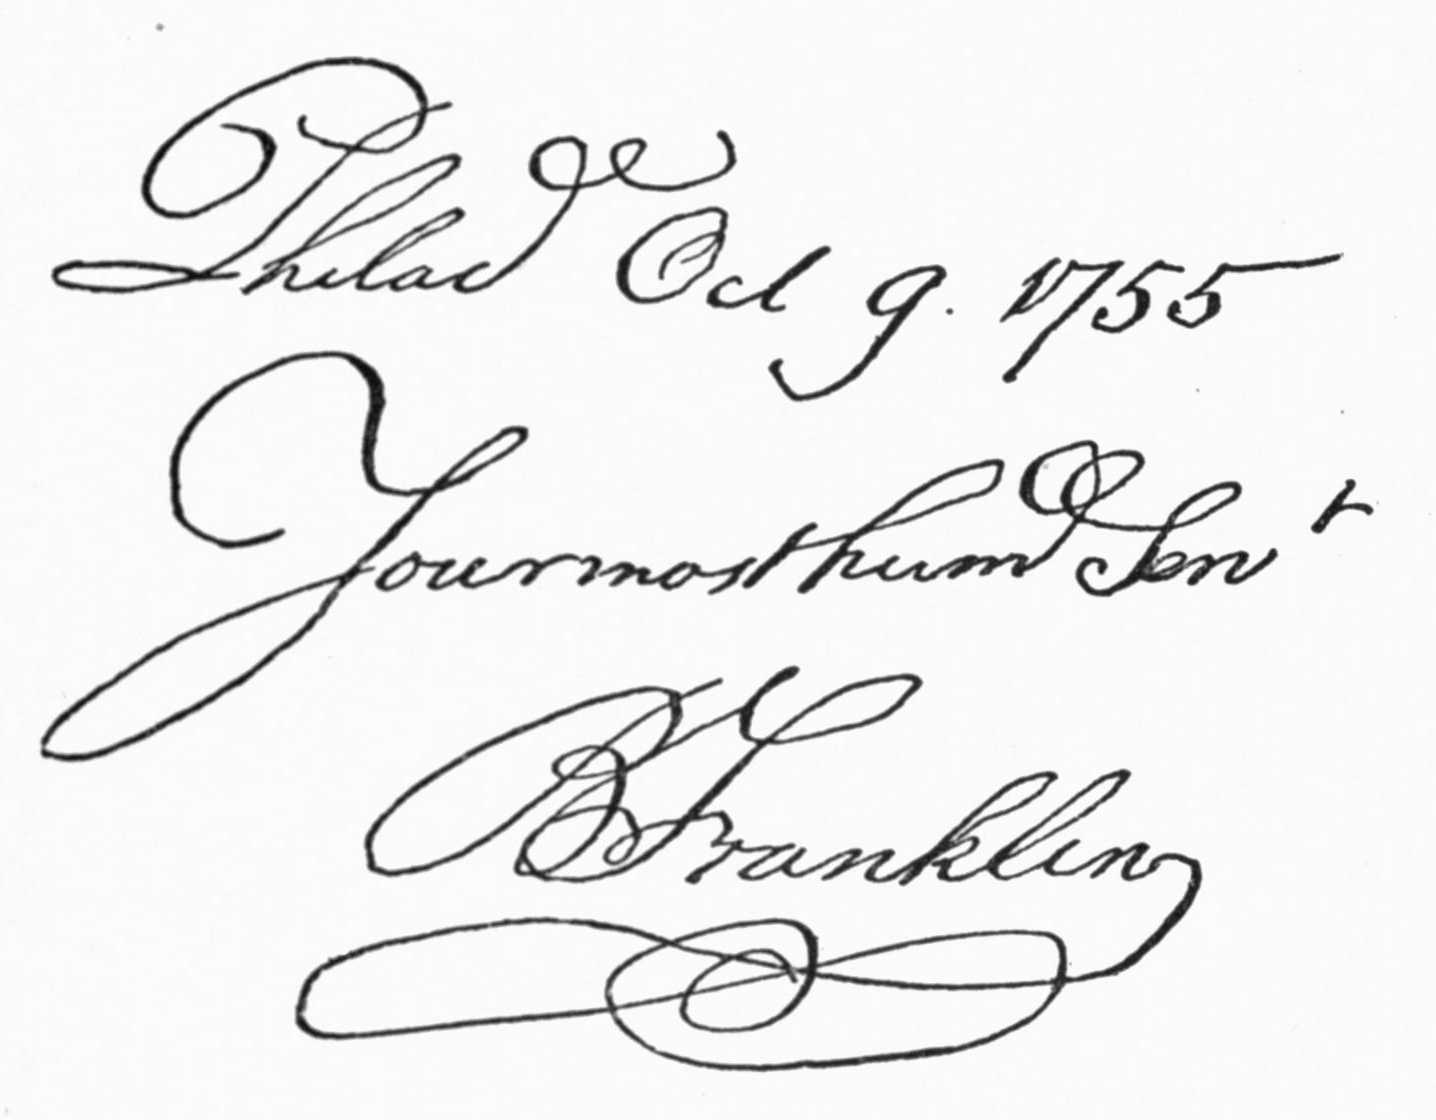 Philad^e Oct 9. 1755
Your most hum^e Serv^t
B Franklin